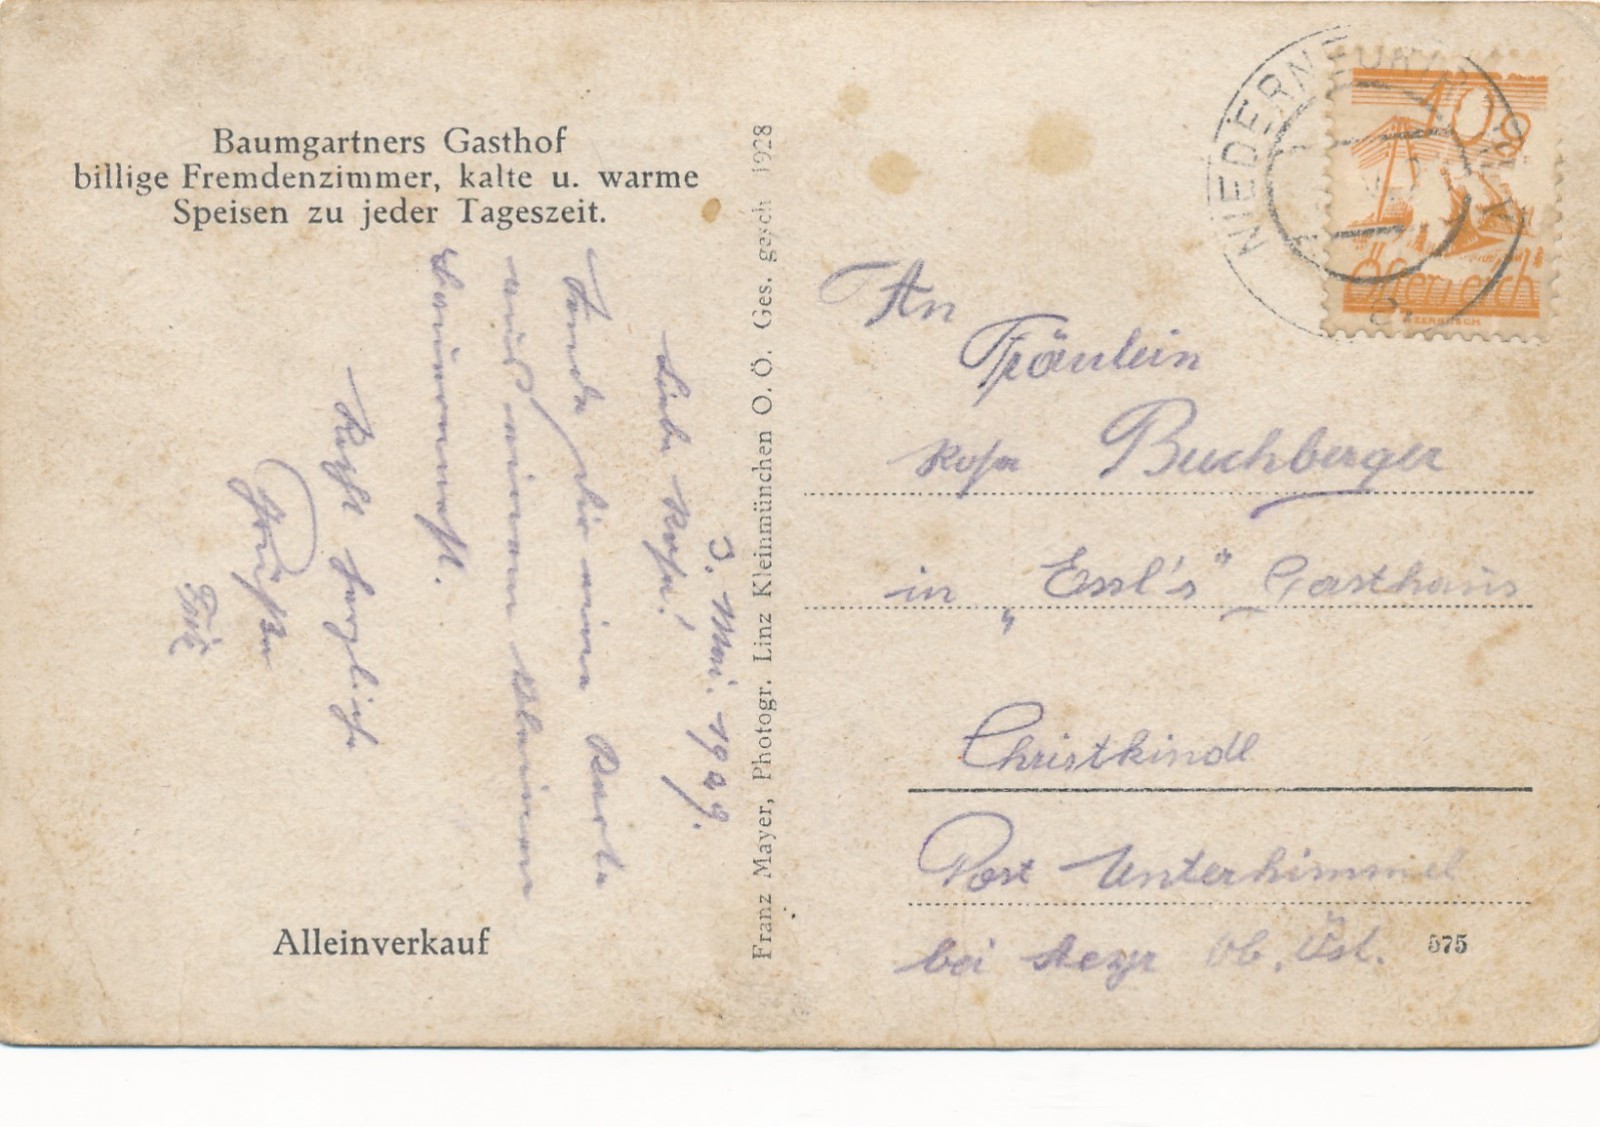 Baumgartners Gasthof
billige Fremdenzimmer, kalte u. warme
Speisen zu jeder Tageszeit.
3. Mai. 1929.
Liebe Rosa!
Sende dir eine Karte
aus meinem kleinen
Heimat.
Recht herzliche
Grüßen
Alleinverkauf
Franz Mayer, Photogr. Linz Kleinmünchen O. Ö. Ges. gesch 1928
An
Fräulein
Rosa Buchberger
in „Essl's" Gasthaus
Christkindl
Post Unterhimmel
bei Steyr Ob. Öst.
575
NIEDERN
10 g
Österreich